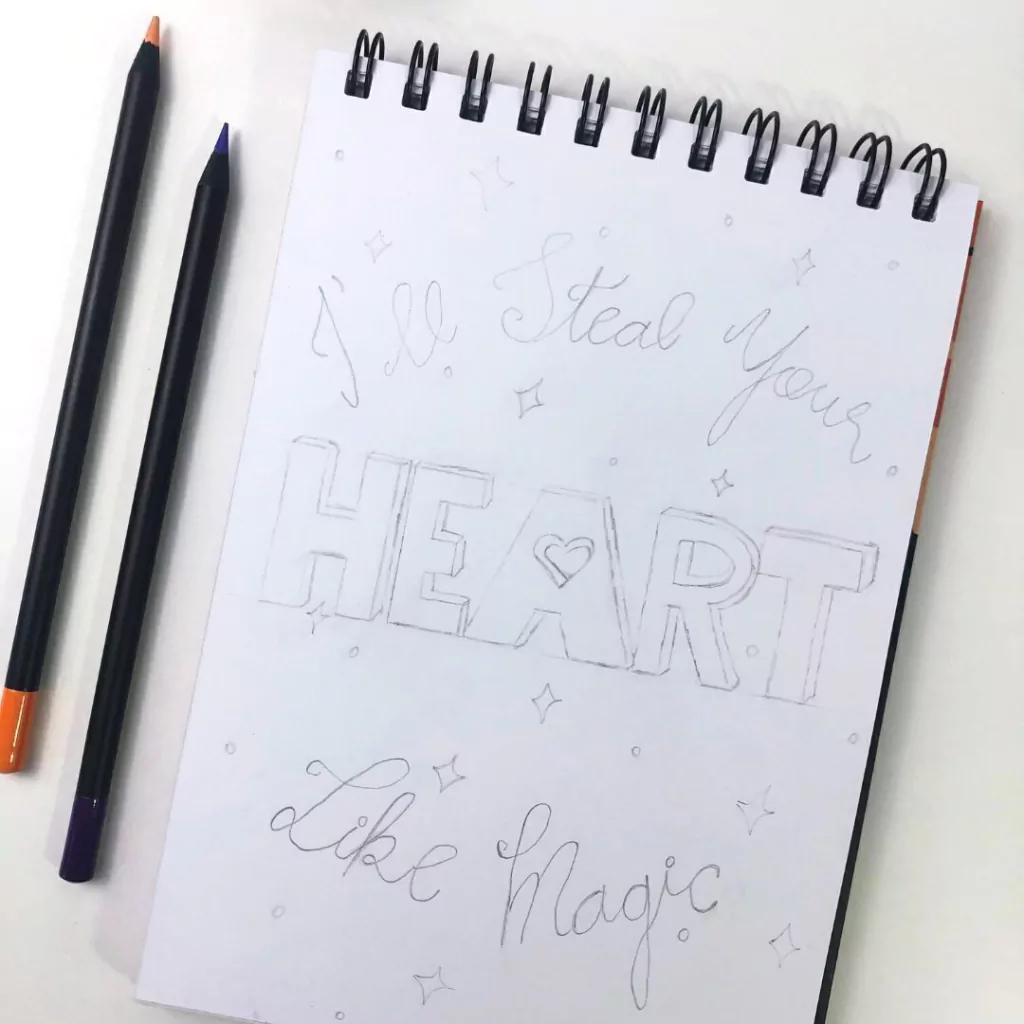 I'll Steal Your
HEART
Like Magic